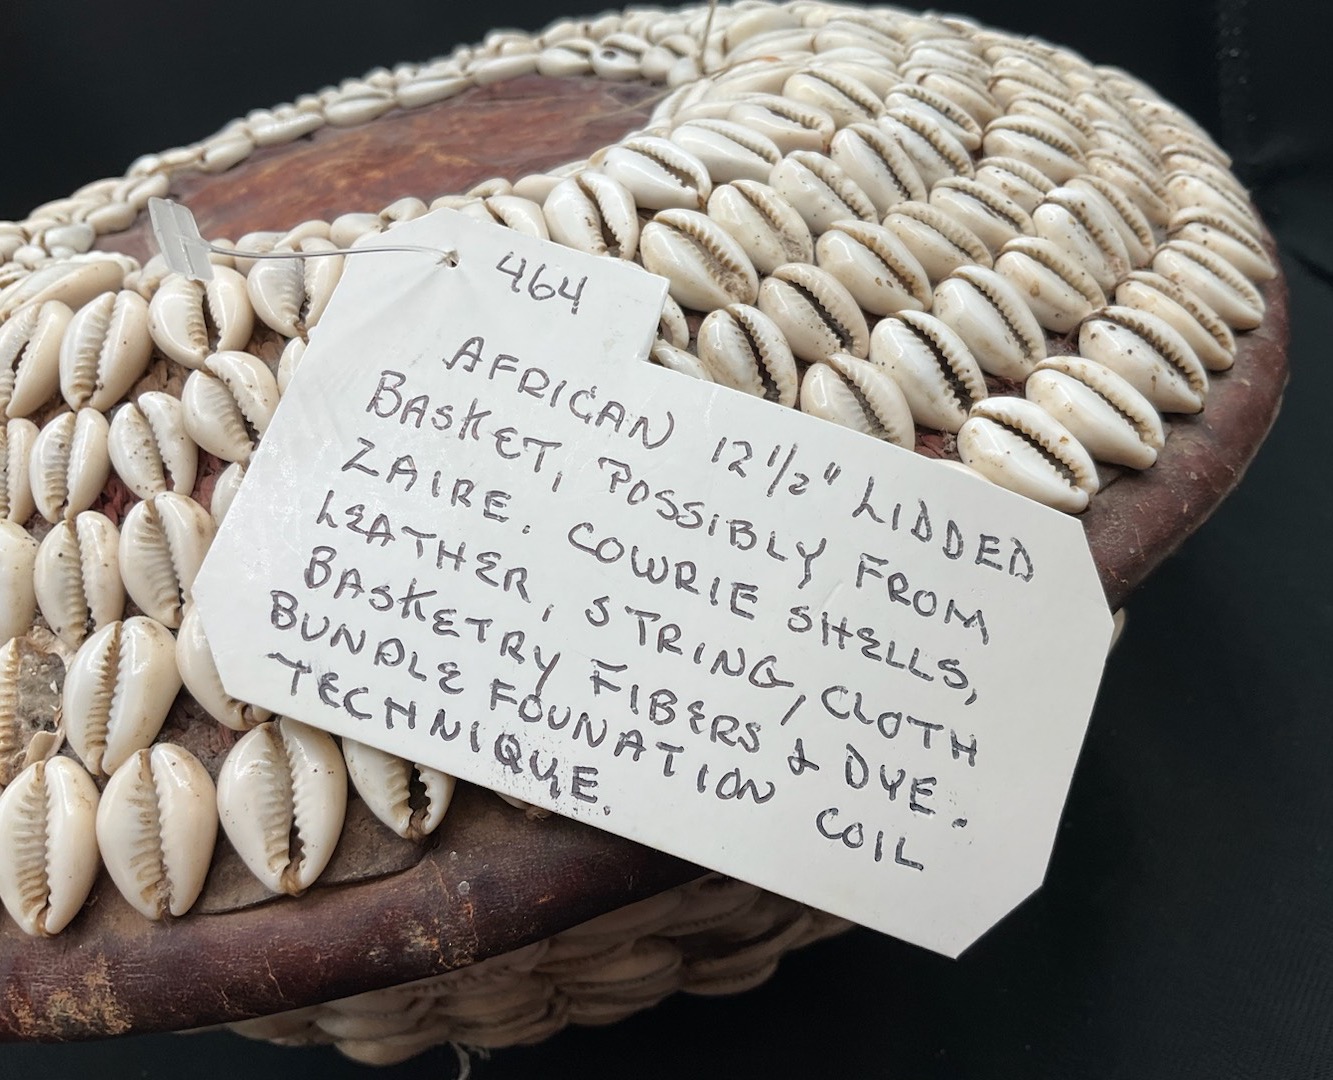 464
AFRICAN 12 1/2" LIDDED
BASKET, POSSIBLY FROM
ZAIRE. COWRIE SHELLS,
LEATHER, STRING, CLOTH
BASKETRY FIBERS & DYE.
BUNDLE FOUNATION COIL
TECHNIQUE.